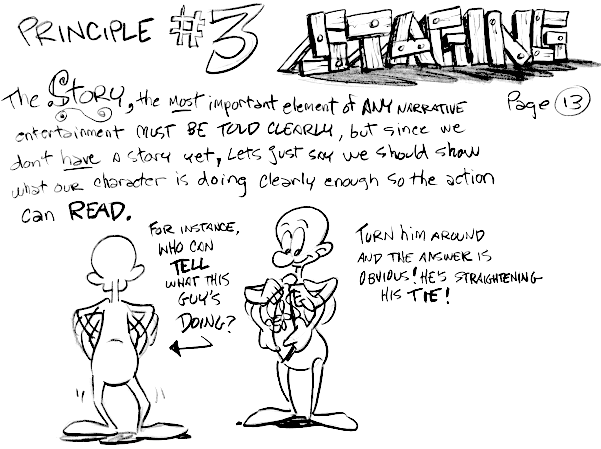 PRINCIPLE #3 STAGING
The STORY, the most important element of ANY NARRATIVE
Page 13
entertainment MUST BE TOLD CLEARLY, but since we
don't have a story yet, Lets just say we should show
what our character is doing clearly enough so the action
can READ.
FOR INSTANCE,
WHO CAN
TELL
WHAT THIS
GUY'S
DOING?
TURN him AROUND
AND THE ANSWER IS
OBVIOUS! HE'S STRAIGHTENING
HIS TIE!